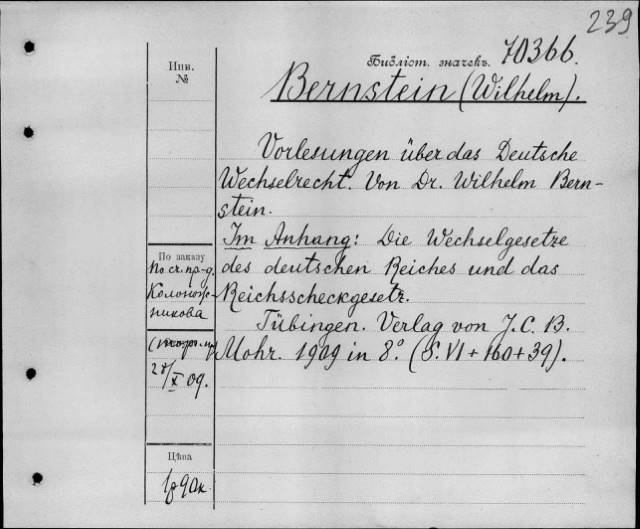 239
Библіот. значекъ. 70366.
Инв.
№
Bernstein (Wilhelm).
Vorlesungen über das Deutsche
Wechselrecht. Von Dr. Wilhelm Bern-
stein.
Im Anhang: Die Wechselgesetze
des deutschen Reiches und das
Reichsscheckgesetz.
Tübingen. Verlag von J. C. B.
Mohr. 1909 in 8.° (S. VI + 160 + 39).
По заказу
По сч. пр-д.
Колонож-
никова
X 09.
Цѣна
1р 90к